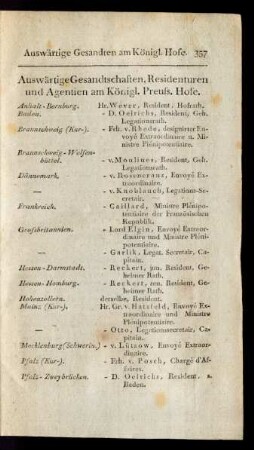 Auswärtige Gesandten am Königl. Hofe. 357
Auswärtige Gesandtschaften, Residenturen
und Agentien am Königl. Preuss. Hofe.
Anhalt-Bernburg. Hr. Wever, Resident, Hofrath.
Baden. - D. Oelrichs, Resident, Geh.
Legationsrath.
Braunschweig (Kur-). - Frh. v. Rhede, designirter En-
voyé Extraordinaire u. Mi-
nistre Plénipotentiaire.
Braunschweig-Wolfen-
büttel. - v. Moulines, Resident, Geh.
Legationsrath.
Dänemark. - v. Rosencranz, Envoyé Ex-
traordinaire.
— - v. Knoblauch, Legations-Se-
cretair.
Frankreich. - Caillard, Ministre Plénipo-
tentiaire der Französischen
Republik.
Grossbritannien. - Lord Elgin, Envoyé Extraor-
dinaire und Ministre Pléni-
potentiaire.
— - Garlik, Legat. Secretair, Ca-
pitain.
Hessen-Darmstadt. - Reckert, jun. Resident, Ge-
heimer Rath.
Hessen-Homburg. - Reckert, sen. Resident, Ge-
heimer Rath.
Hohenzollern. derselbe, Resident.
Mainz (Kur-). Hr. Gr. v. Hatzfeld, Envoyé Ex-
traordinaire und Ministre
Plénipotentiaire.
— - Otto, Legationssecretair, Ca-
pitain.
Mecklenburg (Schwerin.) - v. Lützow, Envoyé Extraor-
dinaire.
Pfalz (Kur-). - Frh. v. Posch, Chargé d'Af-
faires.
Pfalz-Zweybrücken. - D. Oelrichs, Resident. s.
Baden.